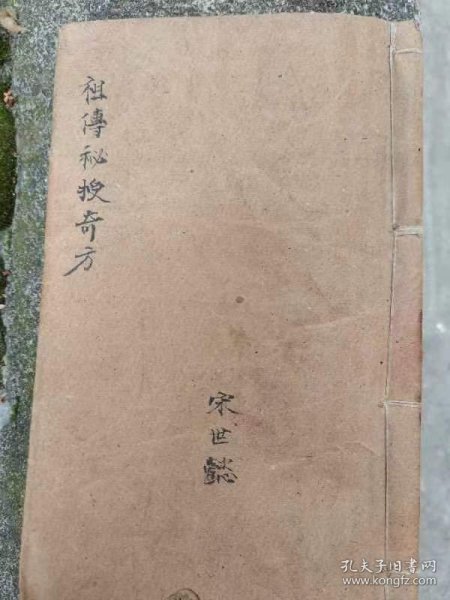 祖傳秘授奇方
宋世懿
孔夫子旧书网
www.kongfz.com